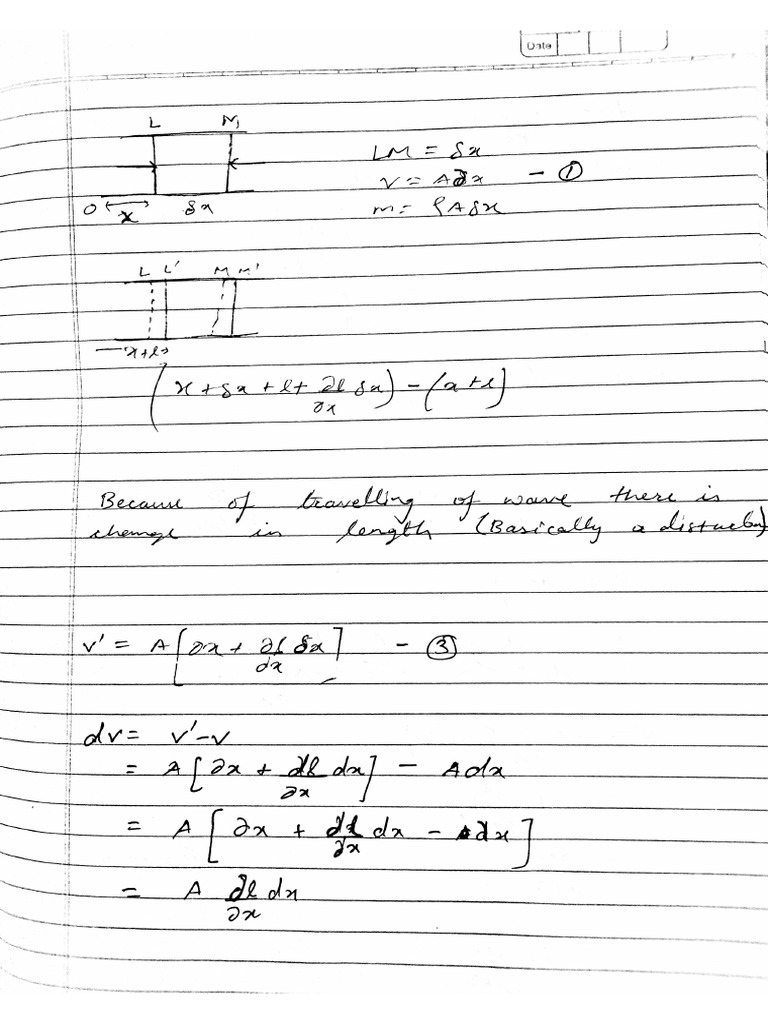 Date
L M
LM = δx
V = A∂x — ①
O x δx
m = ρAδx
L L' M M'
x+l
(x + δx + l + ∂l/∂x δx) - (x+l)
Because of travelling of wave there is
change in length (Basically a disturban)
v' = A[∂x + ∂l/dx δx] — ③
dv = v'-v
= A[∂x + ∂l/∂x dx] - Adx
= A[∂x + ∂l/∂x dx - dx]
= A ∂l/∂x dx